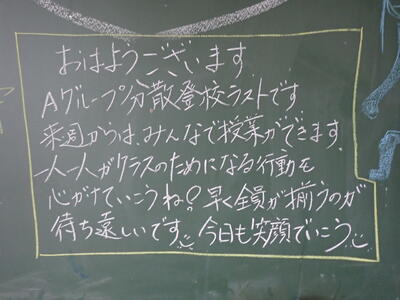 おはようございます
Aグループ分散登校ラストです
来週からは、みんなで授業ができます。
一人一人がクラスのためになる行動を
心がけていこうね! 早く全員が揃うのが
待ち遠しいです 今日も笑顔でいこう